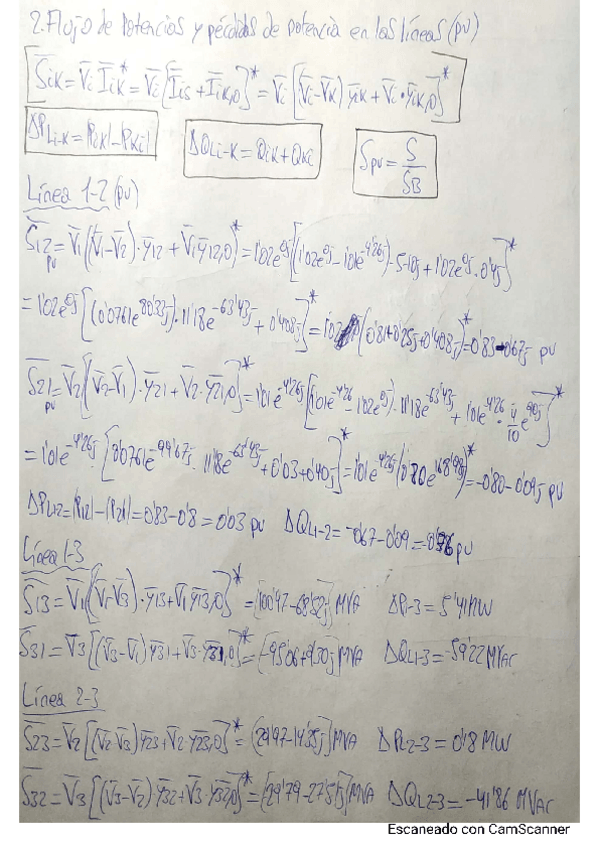 2. Flujo de potencias y pérdidas de potencia en las líneas (pu)
S̅iK = V̅i I̅iK* = V̅i [I̅is + I̅iK,0]* = V̅i [(V̅i-V̅K) y̅iK + V̅i · y̅iK,0]*
ΔPLi-K = |PiK| - |PKi| ΔQLi-K = QiK + QKi Spu = S/SB
Línea 1-2 (pu)
S̅12 pu = V̅1 [(V̅1-V̅2) · y̅12 + V̅1 y̅12,0]* = 1'02e^0j [(1'02e^0j - 1'01e^-4'26j) · 5-10j + 1'02e^0j · 0'4j]*
= 1'02e^0j [(0'0761e^80'33j) · 11'18e^-63'43j + 0'408j]* = 1'02 (0'81+0'25j+0'408j)* = 0'83-0'67j pu
S̅21 pu = V̅2 [(V̅2-V̅1) · y̅21 + V̅2 · y̅21,0]* = 1'01e^-4'26j [(1'01e^-4'26 - 1'02e^0j) · 11'18e^-63'43j + 1'01e^-4'26 · 4/10 e^90j]*
= 1'01e^-4'26j · [0'0761e^-99'67j · 11'18e^-63'43j + 0'03 + 0'40j]* = 1'01e^-4'26j (0'80e^168'98j)* = -0'80-0'09j pu
ΔPL1-2 = |P12| - |P21| = 0'83-0'8 = 0'03 pu ΔQL1-2 = -0'67-0'09 = -0'76 pu
Línea 1-3
S̅13 = V̅1 [(V̅1-V̅3) · y̅13 + V̅1 y̅13,0]* = (100'47-68'52j) MVA ΔP1-3 = 5'41 MW
S̅31 = V̅3 [(V̅3-V̅1) y̅31 + V̅3 · y̅31,0]* = (-95'06+9'30j) MVA ΔQL1-3 = -59'22 MVAr
Línea 2-3
S̅23 = V̅2 [(V̅2-V̅3) y̅23 + V̅2 · y̅23,0]* = MVA ΔPL2-3 = 0'18 MW
S̅32 = V̅3 [(V̅3-V̅2) · y̅32 + V̅3 · y̅32,0]* = MVA ΔQL2-3 = -41'86 MVAr
Escaneado con CamScanner